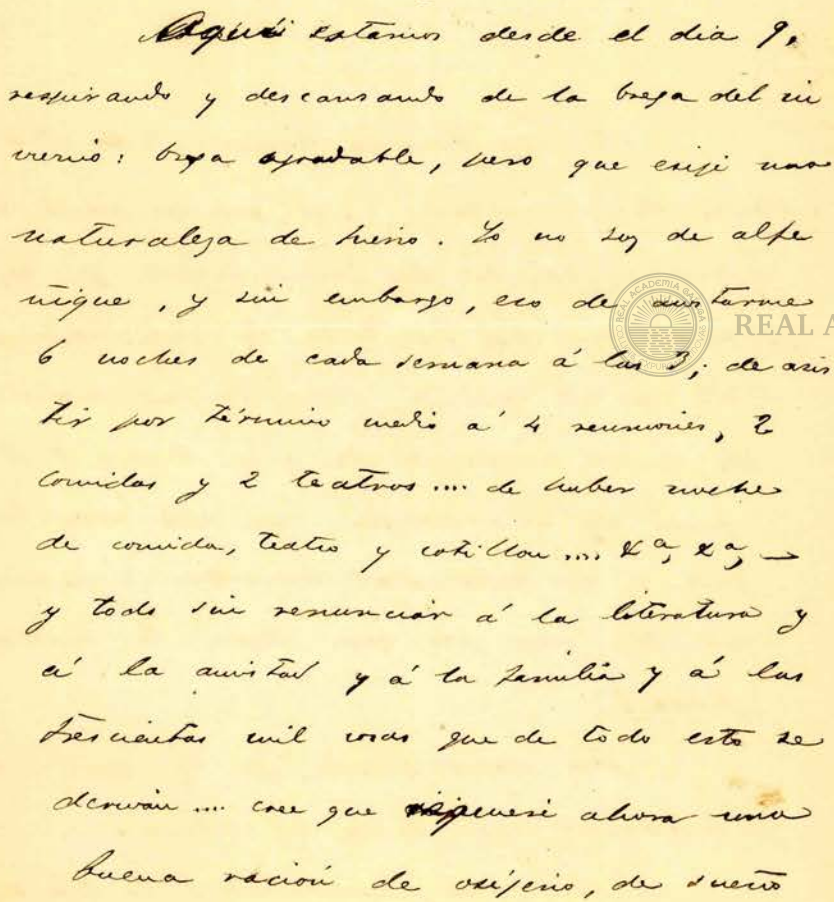 Aquí estamos desde el dia 9,
respirando y descansando de la brega del in
vierno: brega agradable, pero que exije una
naturaleza de hierro. Yo no soy de alfe
ñique, y sin embargo, eso de acostarme
6 noches de cada semana á las 3; de asis
tir por término medio á 4 reuniones, 2
comidas y 2 teatros.... de haber noche
de comida, teatro y cotillon.... &ª, &ª, —
y todo sin renunciar á la literatura y
á la amistad y á la familia y á las
trescientas mil cosas que de todo esto se
derivan.... cree que ahora una
buena ración de oxíjeno, de sueño
REAL A